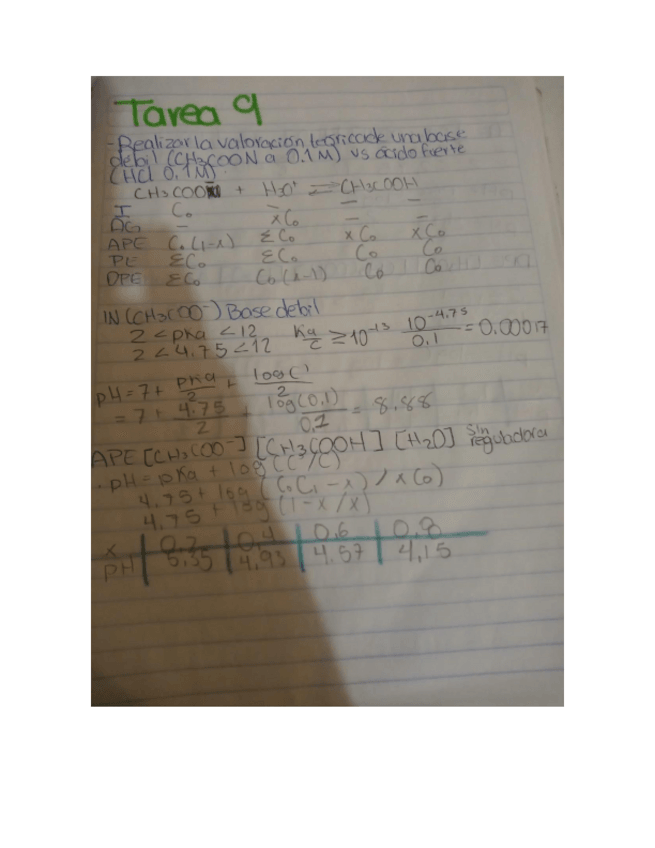 Tarea 9
- Realizar la valoración teoricade una base
debil (CH3COONa 0.1M) vs ácido fuerte
(HCl 0.1M)
CH3COO + H3O+ ⇌ CH3COOH
I C0 – – –
AG – xC0 – –
APE C0(1-x) εC0 xC0 xC0
PE εC0 εC0 C0 C0
DPE εC0 C0(x-1) C0 C0
IN (CH3COO-) Base debil
2 < pKa < 12 Ka/C ≥ 10^-13 10^-4.75/0.1 = 0.00017
2 < 4.75 < 12
pH = 7 + pKa/2 + logC'/2
= 7 + 4.75/2 + log(0.1)/0.2 = 8.88
APE [CH3COO-] [CH3COOH] [H2O] Sln reguladora
pH = pKa + log(C'/C)
4.75 + log (C0C1-x)/xC0)
4.75 + log (1-x/x)
x | 0.2 | 0.4 | 0.6 | 0.8
pH | 5.35 | 4.93 | 4.57 | 4,15